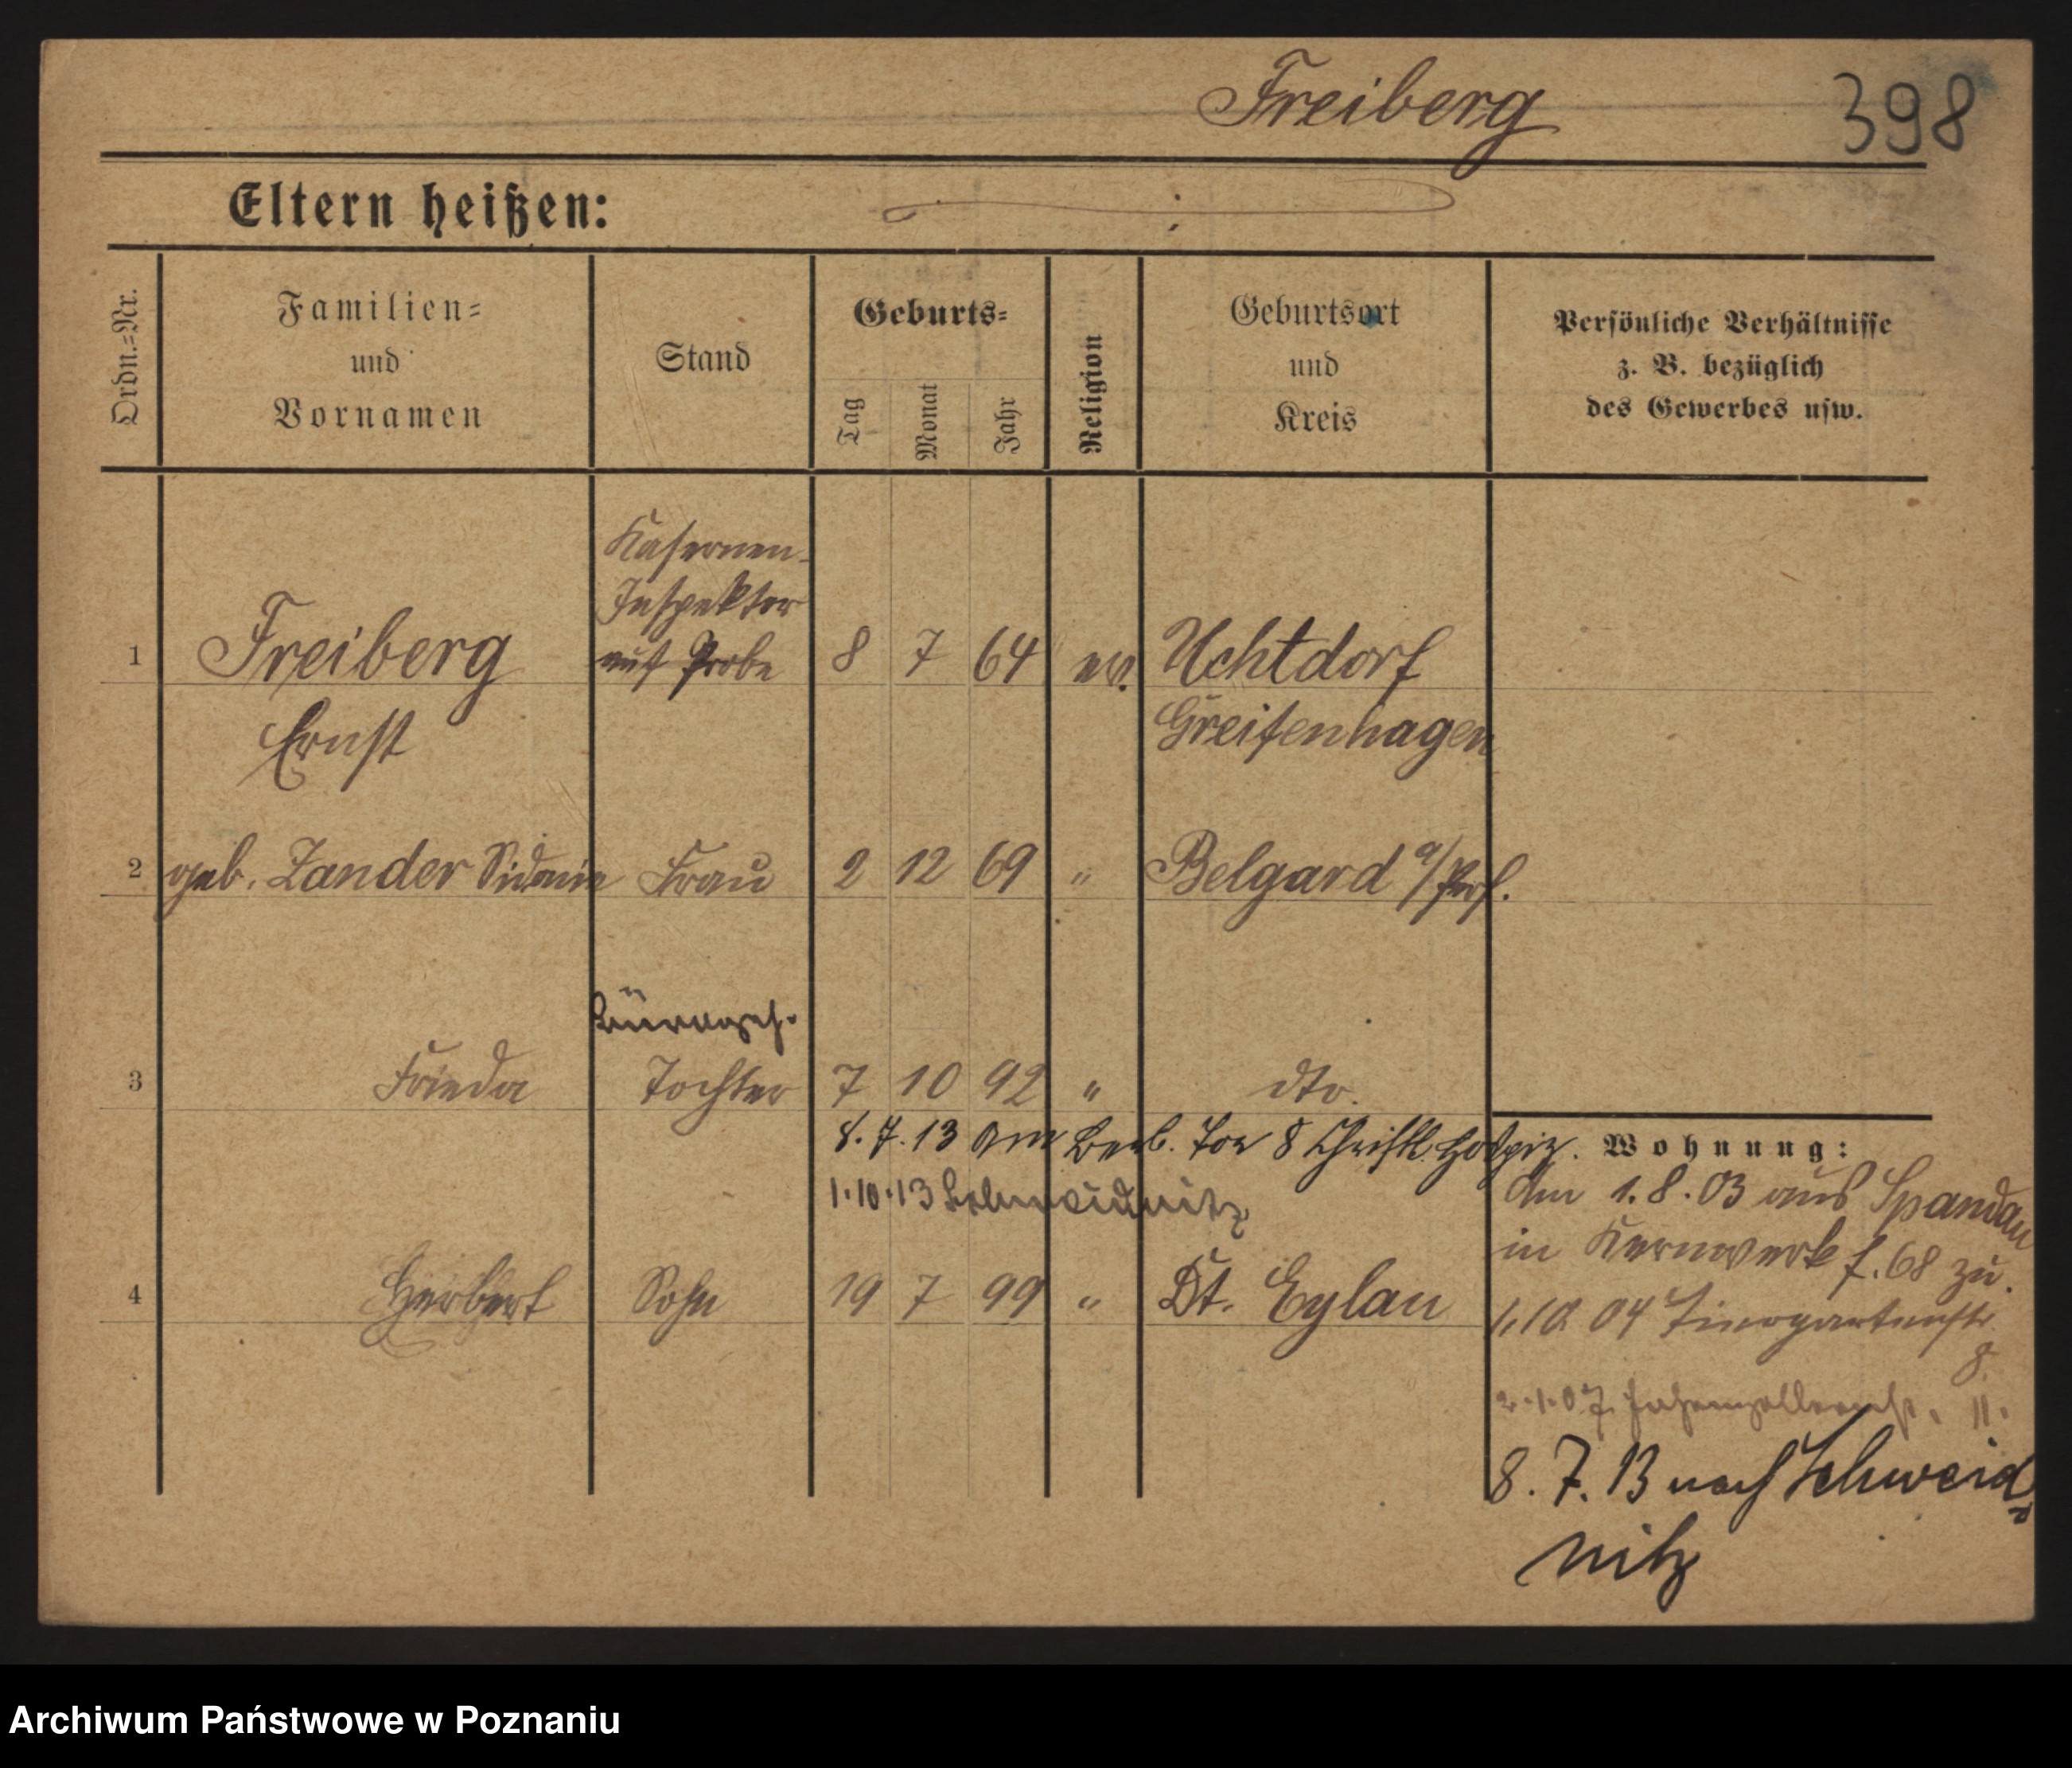 Freiberg
398
Eltern heißen:
Ordn.=Nr.
Familien=
und
Vornamen
Stand
Geburts=
Tag
Monat
Jahr
Religion
Geburtsort
und
Kreis
Persönliche Verhältnisse
z. B. bezüglich
des Gewerbes usw.
Kasernen-
Inspektor
auf Probe
1 Freiberg 8 7 64 ev. Uchtdorf
Ernst Greifenhagen
2 geb. Zander Sidonie Frau 2 12 69 " Belgard a/Pers.
Bürogeh.
3 Frieda Tochter 7 10 92 " dto.
8.7.13 Am Berl. Tor 8 Christl. Hospiz.
1.10.13 Schweidnitz
4 Herbert Sohn 19 7 99 " Dt. Eylau
Wohnung:
Am 1.8.03 aus Spandau
in Kernwerk f. 68 zu.
1.10 04 Tiergartenstr.
8.
2.1.07 Hohenzollernstr. 11.
8.7.13 nach Schweid=
nitz
Archiwum Państwowe w Poznaniu